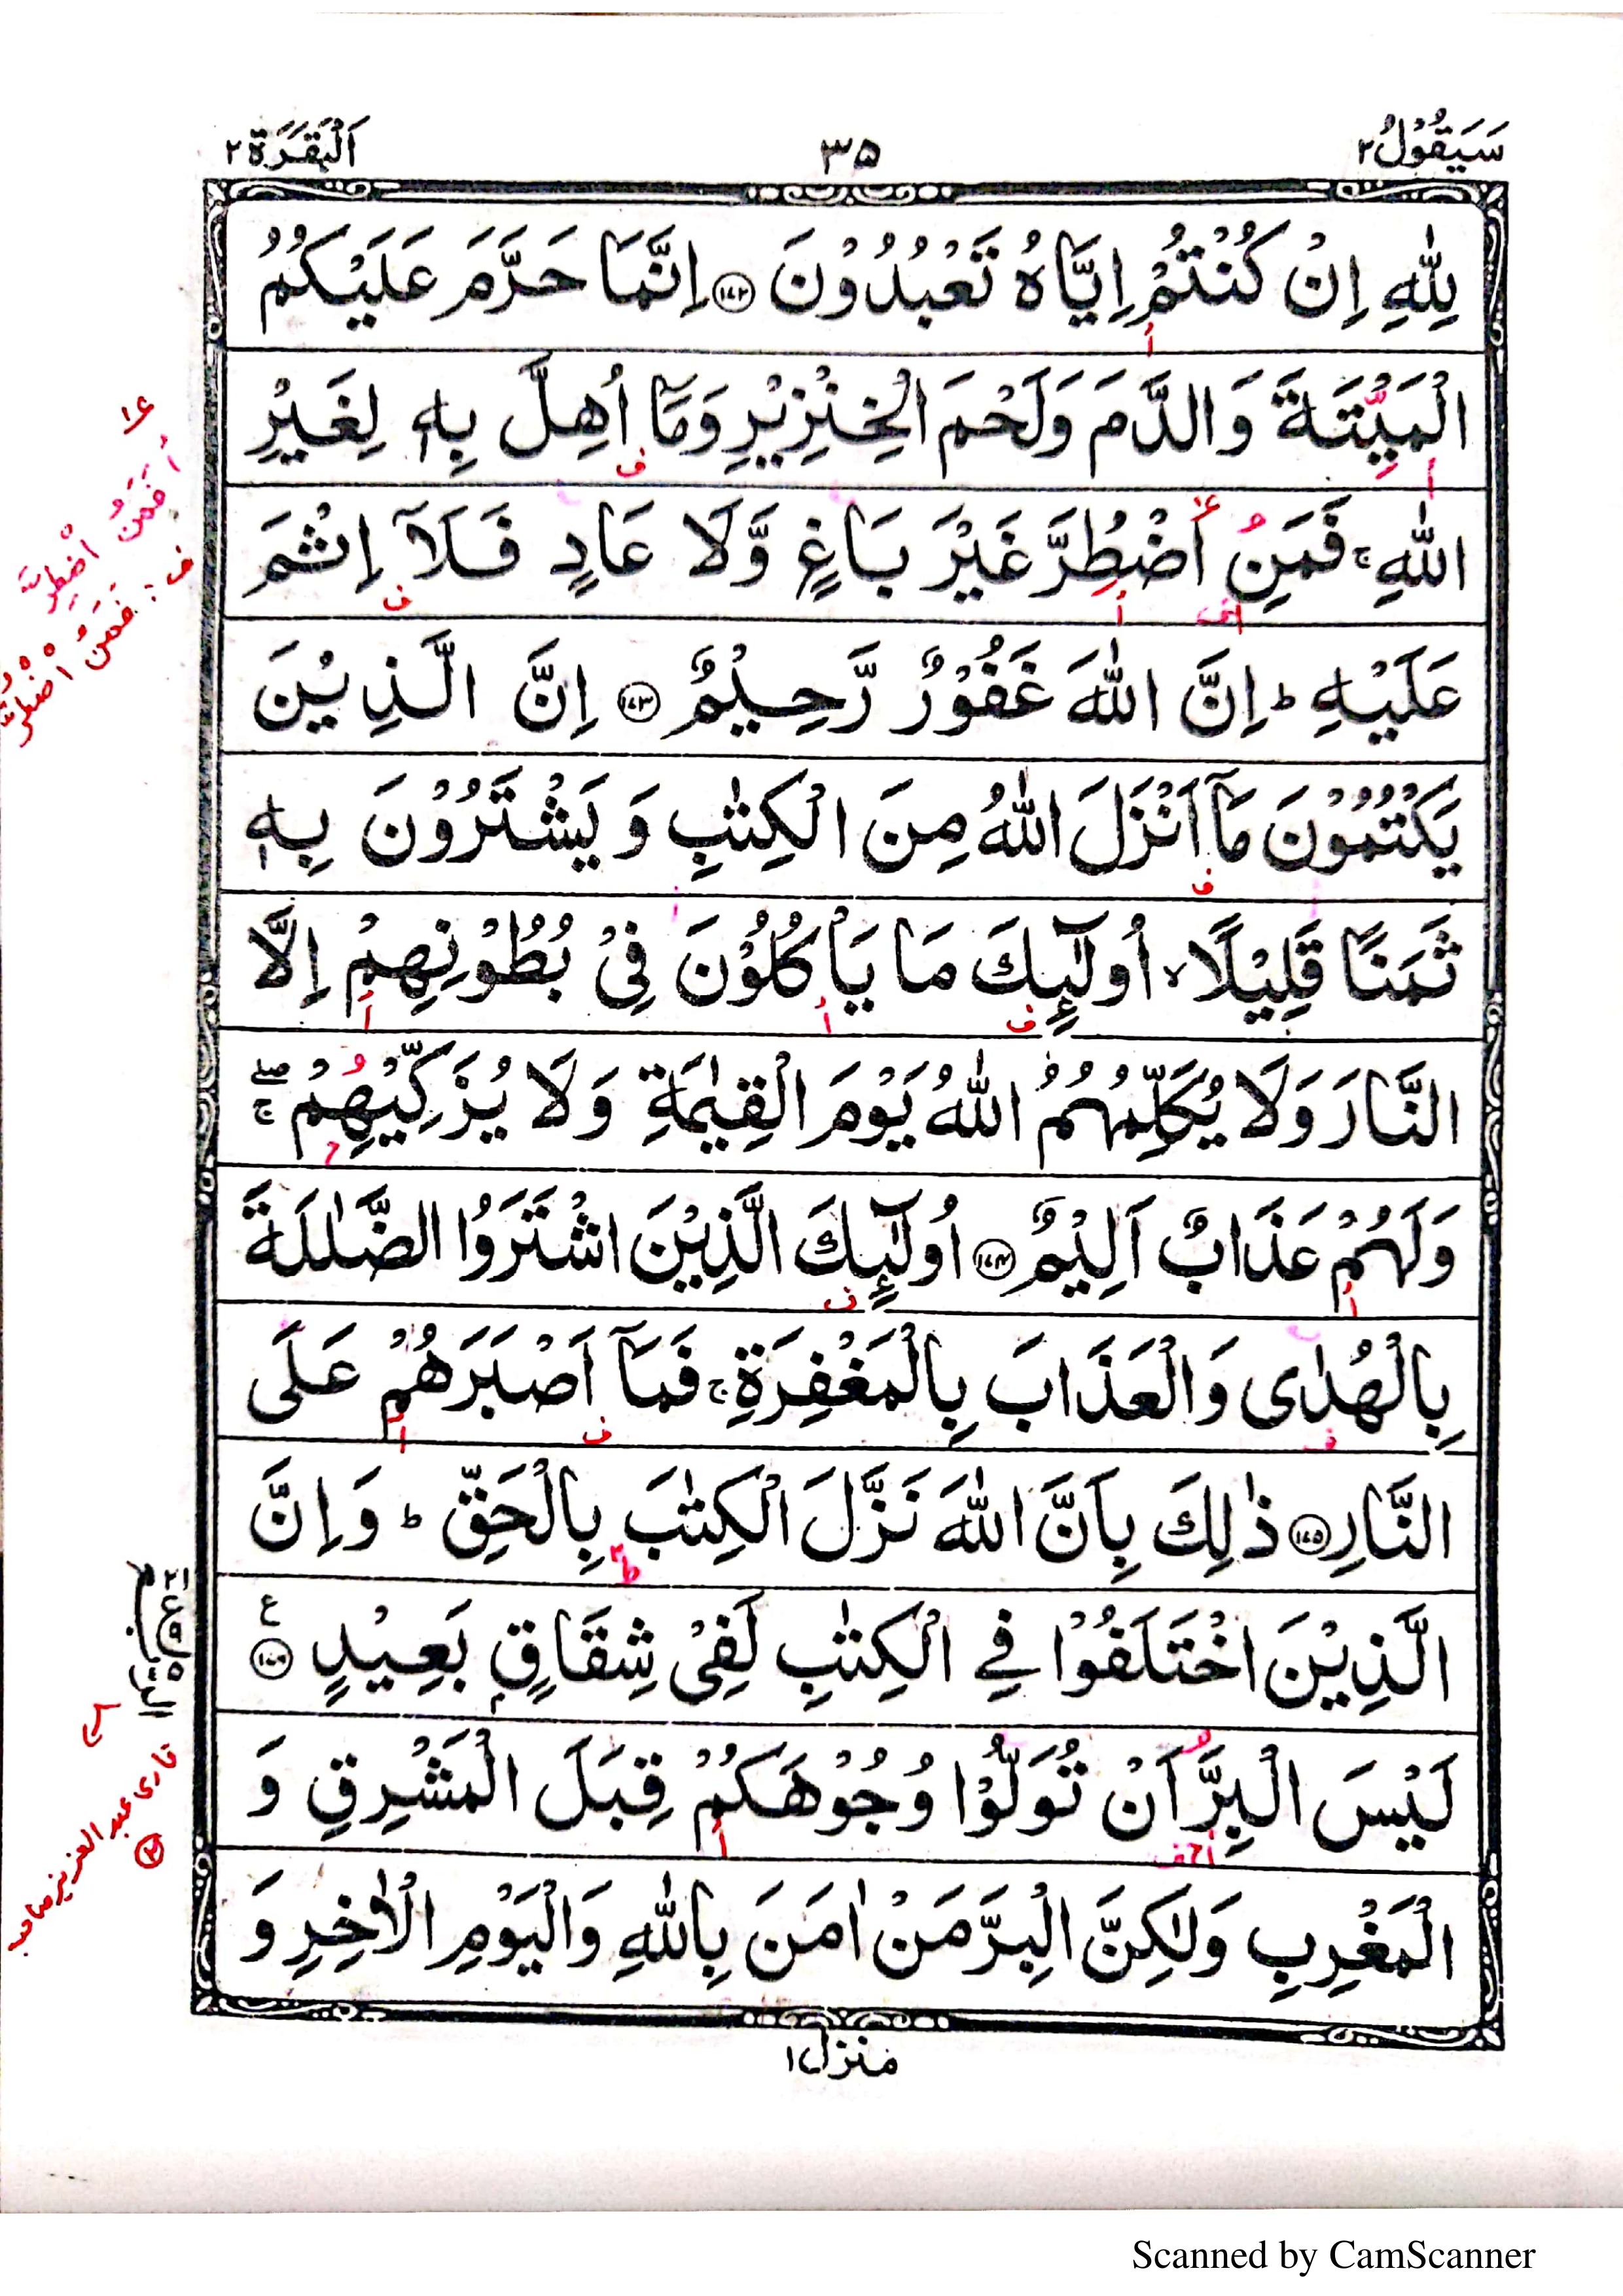 سَيَقُوْلُ ٢
٣٥
اَلْبَقَرَة ٢
لِلّٰهِ اِنْ كُنْتُمْ اِيَّاهُ تَعْبُدُوْنَ ﴿١٧٢﴾ اِنَّمَا حَرَّمَ عَلَيْكُمُ
الْمَيْتَةَ وَالدَّمَ وَلَحْمَ الْخِنْزِيْرِ وَمَاۤ اُهِلَّ بِهٖ لِغَيْرِ
اللّٰهِ ۚ فَمَنِ اضْطُرَّ غَيْرَ بَاغٍ وَّلَا عَادٍ فَلَاۤ اِثْمَ
عَلَيْهِ ؕ اِنَّ اللّٰهَ غَفُوْرٌ رَّحِيْمٌ ﴿١٧٣﴾ اِنَّ الَّذِيْنَ
يَكْتُمُوْنَ مَاۤ اَنْزَلَ اللّٰهُ مِنَ الْكِتٰبِ وَ يَشْتَرُوْنَ بِهٖ
ثَمَنًا قَلِيْلًا ۙ اُولٰٓئِكَ مَا يَاْكُلُوْنَ فِيْ بُطُوْنِهِمْ اِلَّا
النَّارَ وَلَا يُكَلِّمُهُمُ اللّٰهُ يَوْمَ الْقِيٰمَةِ وَلَا يُزَكِّيْهِمْ ۖۚ
وَلَهُمْ عَذَابٌ اَلِيْمٌ ﴿١٧٤﴾ اُولٰٓئِكَ الَّذِيْنَ اشْتَرَوُا الضَّلٰلَةَ
بِالْهُدٰى وَالْعَذَابَ بِالْمَغْفِرَةِ ۚ فَمَاۤ اَصْبَرَهُمْ عَلَى
النَّارِ ﴿١٧٥﴾ ذٰلِكَ بِاَنَّ اللّٰهَ نَزَّلَ الْكِتٰبَ بِالْحَقِّ ؕ وَاِنَّ
الَّذِيْنَ اخْتَلَفُوْا فِي الْكِتٰبِ لَفِيْ شِقَاقٍۭ بَعِيْدٍ ﴿١٧٦﴾ ع
لَيْسَ الْبِرَّ اَنْ تُوَلُّوْا وُجُوْهَكُمْ قِبَلَ الْمَشْرِقِ وَ
الْمَغْرِبِ وَلٰكِنَّ الْبِرَّ مَنْ اٰمَنَ بِاللّٰهِ وَالْيَوْمِ الْاٰخِرِ وَ
منزل ١
فَمَنُ اضْطِرَّ
ف: فَمَنُ اضْطُرَّ
قاری عبد العزیز صاحب
Scanned by CamScanner